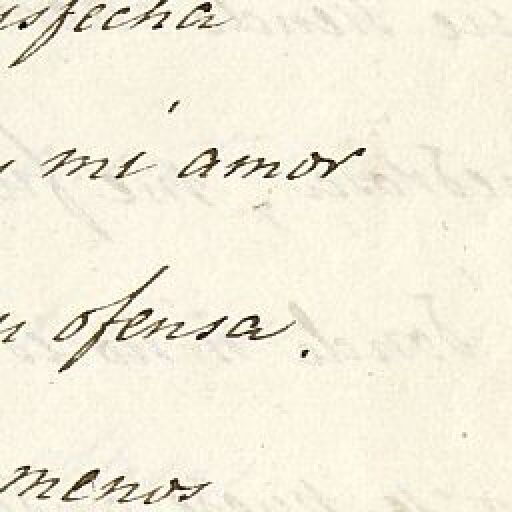 isfecha
mi amor
ofensa.
menos